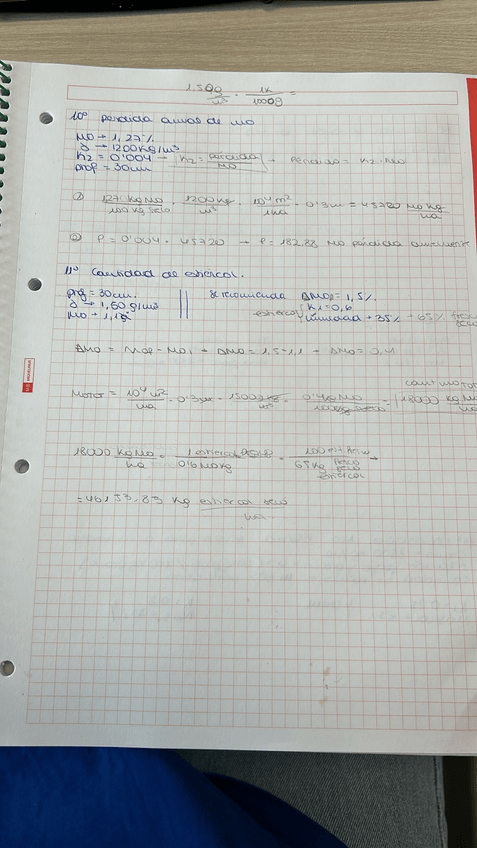 1.500g/m³ · 1K/1000g =
10º pérdida anual de MO
MO → 1,27%
δ → 1200Kg/m³
K2 = 0'004 → K2 = pérdida/MO → Pérdida = K2 · MO
prof = 30cm
① 1'27 KgMO/100 Kg suelo · 1200Kg/m³ · 10⁴m²/1ha · 0'3m = 45720 MO Kg/ha
② P = 0'004 · 45720 → P = 182,88 MO pérdida anualmente
11º Cantidad de estiércol.
prof = 30cm. se recomienda ΔMOf = 1,5%.
δ → 1,50 g/cm³ K1 = 0,6
MO → 1,1% estiércol humedad → 35% → 65%
ΔMO = MOf - MOi → ΔMO = 1,5-1,1 → ΔMO = 0,4
MOtot = 10⁴m²/ha · 0'3m · 1500Kg/m³ · 0'4KgMO/100Kg suelo = 18000 KgMO/ha
18000 KgMO/ha · 1 estiércol/0'6 MO Kg · 100/65 Kg seco estiércol →
= 46153,85 Kg estiércol/ha